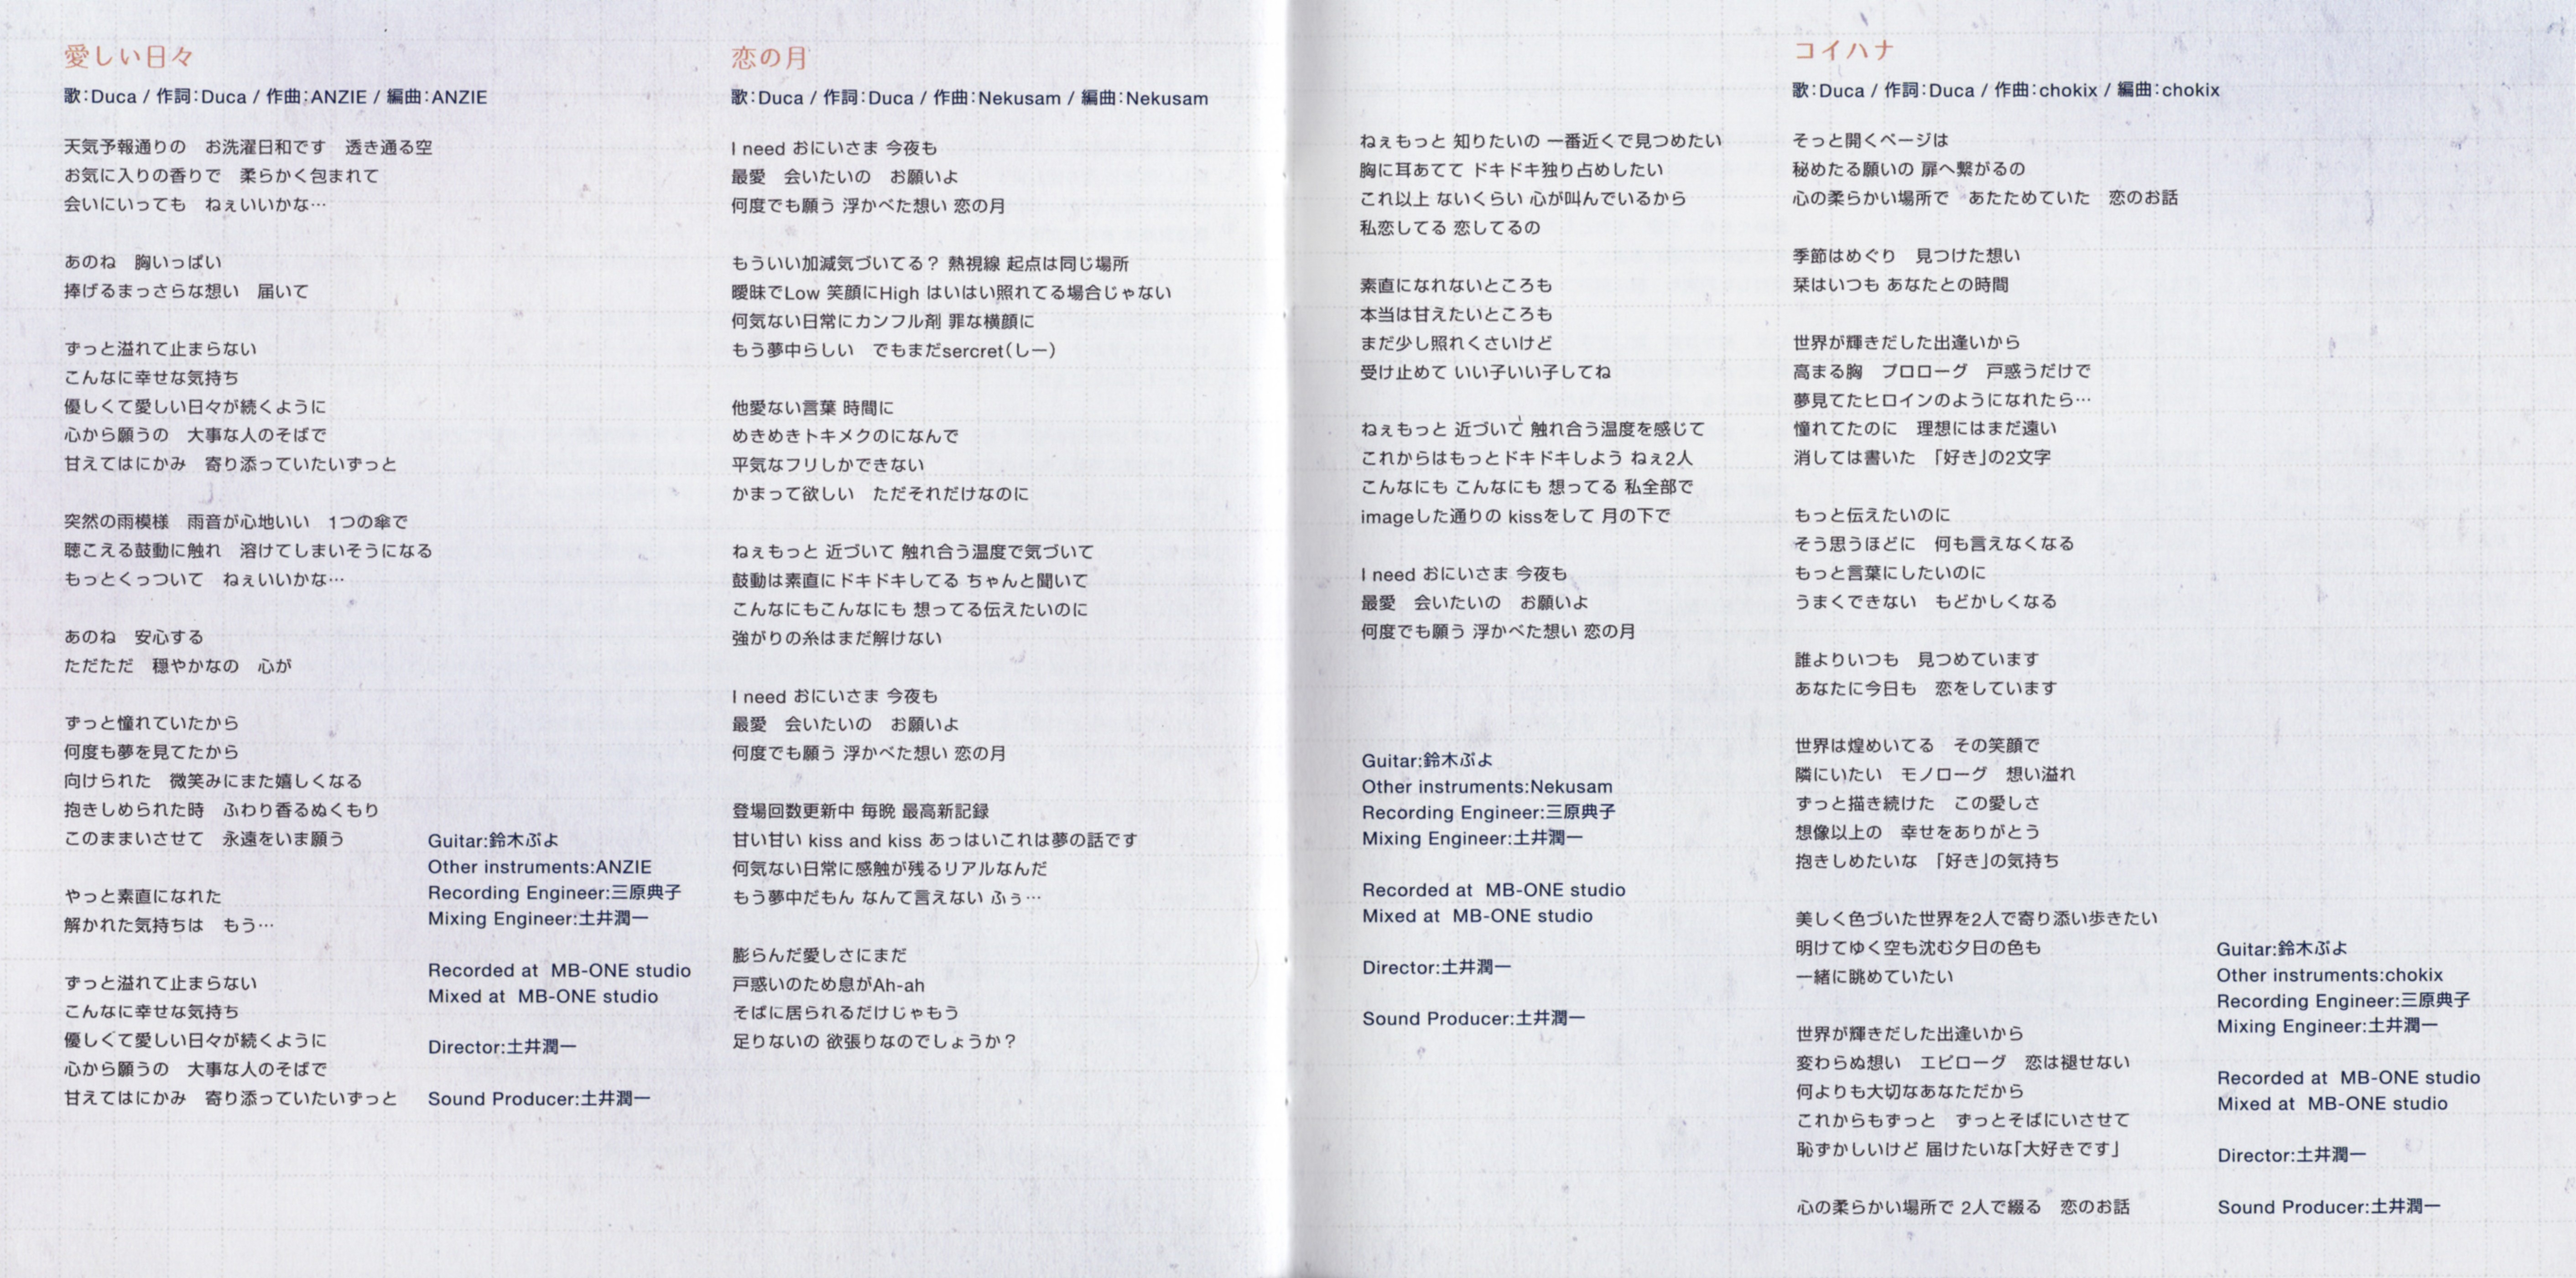 愛しい日々
歌:Duca / 作詞:Duca / 作曲:ANZIE / 編曲:ANZIE
天気予報通りの　お洗濯日和です　透き通る空
お気に入りの香りで　柔らかく包まれて
会いにいっても　ねぇいいかな…

あのね　胸いっぱい
捧げるまっさらな想い　届いて

ずっと溢れて止まらない
こんなに幸せな気持ち
優しくて愛しい日々が続くように
心から願うの　大事な人のそばで
甘えてはにかみ　寄り添っていたいずっと

突然の雨模様　雨音が心地いい　1つの傘で
聴こえる鼓動に触れ　溶けてしまいそうになる
もっとくっついて　ねぇいいかな…

あのね　安心する
ただただ　穏やかなの　心が

ずっと憧れていたから
何度も夢を見てたから
向けられた　微笑みにまた嬉しくなる
抱きしめられた時　ふわり香るぬくもり
このままいさせて　永遠をいま願う

やっと素直になれた
解かれた気持ちは　もう…

ずっと溢れて止まらない
こんなに幸せな気持ち
優しくて愛しい日々が続くように
心から願うの　大事な人のそばで
甘えてはにかみ　寄り添っていたいずっと

Guitar:鈴木ぷよ
Other instruments:ANZIE
Recording Engineer:三原典子
Mixing Engineer:土井潤一

Recorded at  MB-ONE studio
Mixed at  MB-ONE studio

Director:土井潤一

Sound Producer:土井潤一

恋の月
歌:Duca / 作詞:Duca / 作曲:Nekusam / 編曲:Nekusam
I need おにいさま 今夜も
最愛　会いたいの　お願いよ
何度でも願う 浮かべた想い 恋の月

もういい加減気づいてる？ 熱視線 起点は同じ場所
曖昧でLow 笑顔にHigh はいはい照れてる場合じゃない
何気ない日常にカンフル剤 罪な横顔に
もう夢中らしい　でもまだsercret(しー)

他愛ない言葉 時間に
めきめきトキメクのになんで
平気なフリしかできない
かまって欲しい　ただそれだけなのに

ねぇもっと 近づいて 触れ合う温度で気づいて
鼓動は素直にドキドキしてる ちゃんと聞いて
こんなにもこんなにも 想ってる伝えたいのに
強がりの糸はまだ解けない

I need おにいさま 今夜も
最愛　会いたいの　お願いよ
何度でも願う 浮かべた想い 恋の月

登場回数更新中 毎晩 最高新記録
甘い甘い kiss and kiss あっはいこれは夢の話です
何気ない日常に感触が残るリアルなんだ
もう夢中だもん なんて言えない ふぅ…

膨らんだ愛しさにまだ
戸惑いのため息がAh-ah
そばに居られるだけじゃもう
足りないの 欲張りなのでしょうか？

ねぇもっと 知りたいの 一番近くで見つめたい
胸に耳あてて ドキドキ独り占めしたい
これ以上 ないくらい 心が叫んでいるから
私恋してる 恋してるの

素直になれないところも
本当は甘えたいところも
まだ少し照れくさいけど
受け止めて いい子いい子してね

ねぇもっと 近づいて 触れ合う温度を感じて
これからはもっとドキドキしよう ねぇ2人
こんなにも こんなにも 想ってる 私全部で
imageした通りの kissをして 月の下で

I need おにいさま 今夜も
最愛　会いたいの　お願いよ
何度でも願う 浮かべた想い 恋の月

Guitar:鈴木ぷよ
Other instruments:Nekusam
Recording Engineer:三原典子
Mixing Engineer:土井潤一

Recorded at  MB-ONE studio
Mixed at  MB-ONE studio

Director:土井潤一

Sound Producer:土井潤一

コイハナ
歌:Duca / 作詞:Duca / 作曲:chokix / 編曲:chokix
そっと開くページは
秘めたる願いの 扉へ繋がるの
心の柔らかい場所で　あたためていた　恋のお話

季節はめぐり　見つけた想い
栞はいつも あなたとの時間

世界が輝きだした出逢いから
高まる胸　プロローグ　戸惑うだけで
夢見てたヒロインのようになれたら…
憧れてたのに　理想にはまだ遠い
消しては書いた　「好き」の2文字

もっと伝えたいのに
そう思うほどに　何も言えなくなる
もっと言葉にしたいのに
うまくできない　もどかしくなる

誰よりいつも　見つめています
あなたに今日も　恋をしています

世界は煌めいてる　その笑顔で
隣にいたい　モノローグ　想い溢れ
ずっと描き続けた　この愛しさ
想像以上の　幸せをありがとう
抱きしめたいな　「好き」の気持ち

美しく色づいた世界を2人で寄り添い歩きたい
明けてゆく空も沈む夕日の色も
一緒に眺めていたい

世界が輝きだした出逢いから
変わらぬ想い　エピローグ　恋は褪せない
何よりも大切なあなただから
これからもずっと　ずっとそばにいさせて
恥ずかしいけど 届けたいな「大好きです」

心の柔らかい場所で 2人で綴る　恋のお話

Guitar:鈴木ぷよ
Other instruments:chokix
Recording Engineer:三原典子
Mixing Engineer:土井潤一

Recorded at  MB-ONE studio
Mixed at  MB-ONE studio

Director:土井潤一

Sound Producer:土井潤一